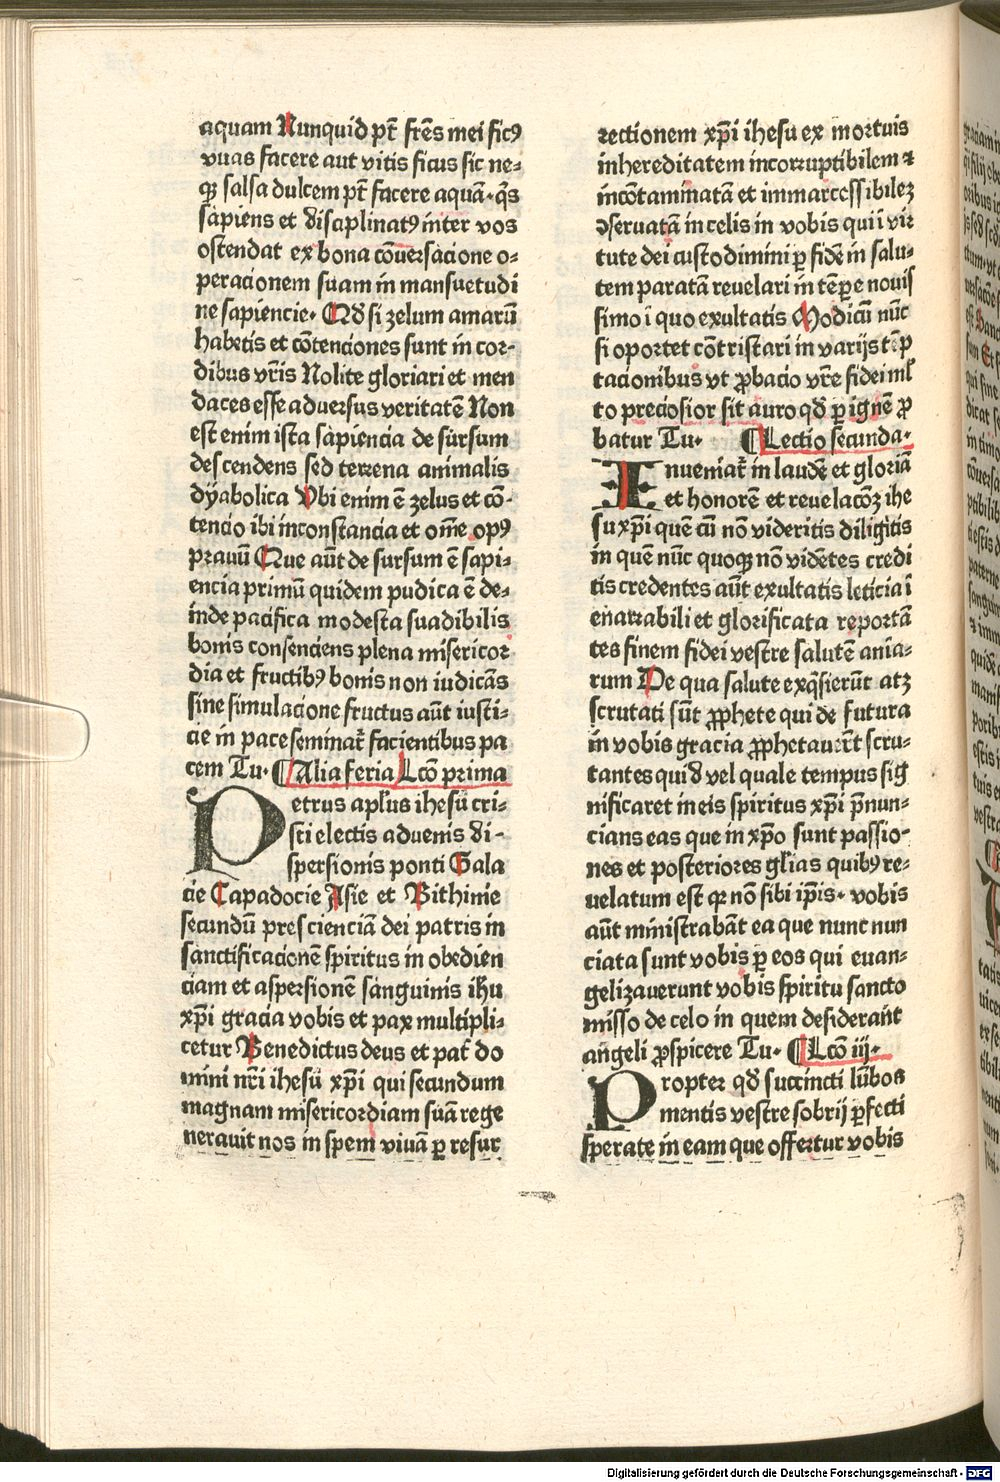 aquam Nunquid pt̄ frēs mei fic9
vuas facere aut vitis ficus sic ne⸗
qꝫ salsa dulcem pt̄ facere aquā· q̄s
sapiens et disciplinat9 inter vos
ostendat ex bona cōuersacione o⸗
peracionem suam in mansuetudi
ne sapiencie· Qd si zelum amarū
habetis et cōtenciones sunt in cor⸗
dibus vr̄is Nolite gloriari et men
daces esse aduersus veritatē Non
est enim ista sapiencia de sursum
descendens sed terrena animalis
dyabolica Vbi enim ē zelus et cō⸗
tencio ibi inconstancia et om̄e op9
prauū Que aūt de sursum ē sapi⸗
encia primū quidem pudica ē de⸗
inde pacifica modesta suadibilis
bonis consenciens plena misericor
dia et fructib9 bonis non iudicās
sine simulacione fructus aūt iusti⸗
cie in pace seminat̄ facientibus pa
cem Tu· ¶ Alia feria Lcō prima
Petrus apl̄us ihesū cri⸗
sti electis aduenis di⸗
spersionis ponti Gala
cie Capadocie Asie et Bithinie
secundū presciencia̅ dei patris in
sanctificacionē spiritus in obedien
ciam et aspersionē sanguinis ihū
xp̄i gracia vobis et pax multipli⸗
cetur Benedictus deus et pat̄ do
mini nr̄i ihesū xp̄i qui secundum
magnam misericordiam suā rege
nerauit nos in spem viuā ꝑ resur
rectionem xp̄i ihesu ex mortuis
inhereditatem incorruptibilem ⁊
incōtaminatā et immarcessibilez
ꝯseruatā in celis in vobis qui ī vir
tute dei custodimini ꝑ fidē in salu⸗
tem paratam reuelari in tēꝑe nouis
simo ī quo exultatis Modicū nūc
si oportet cōtristari in varijs tēꝑ
tacionibus vt ꝓbacio vr̄e fidei ml̄
to preciosior sit auro qd̄ ꝑ ignē ꝓ
batur Tu· ¶ Lectio secunda·
Inueniat̄ in laudē et gloriā
et honorē et reuelacōꝫ ihe
su xp̄i quē cū nō videritis diligitis
in quē nūc quoqꝫ nō vidētes credi
tis credentes aūt exultatis leticia ī
enarrabili et glorificata reportā
tes finem fidei vestre salutē aniā⸗
rum De qua salute exq̄sierūt atꝫ
scrutati sūt ꝓphete qui de futura
in vobis gracia ꝓphetauerūt scru⸗
tantes quid vel quale tempus sig
nificaret in eis spiritus xp̄i p̄nun⸗
cians eas que in xp̄o sunt passio⸗
nes et posteriores gl̄ias quib9 re⸗
uelatum est qꝛ nō sibi ip̄is· vobis
aūt ministrabāt ea que nunc nun
ciata sunt vobis ꝑ eos qui euan⸗
gelizauerunt vobis spiritu sancto
misso de celo in quem desiderānt
angeli ꝓspicere Tu· ¶ Lcō iij·
Propter qd̄ succincti lūbos
mentis vestre sobrij ꝑfecti
sperate in eam que offertur vobis
Digitalisierung gefördert durch die Deutsche Forschungsgemeinschaft - DFG